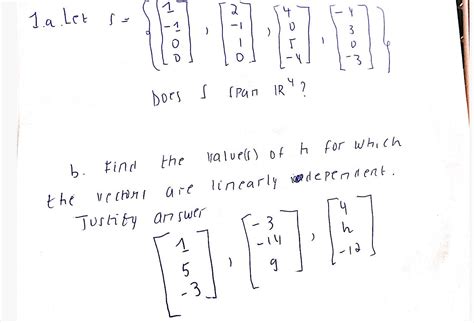 1.a. Let S = { [1 -1 0 0], [2 -1 1 0], [4 0 5 -4], [-4 3 0 -3] }
Does S span IR⁴?
b. Find the value(s) of h for which
the vectors are linearly dependent.
Justify answer
[1 5 -3], [-3 -14 9], [4 h -12]